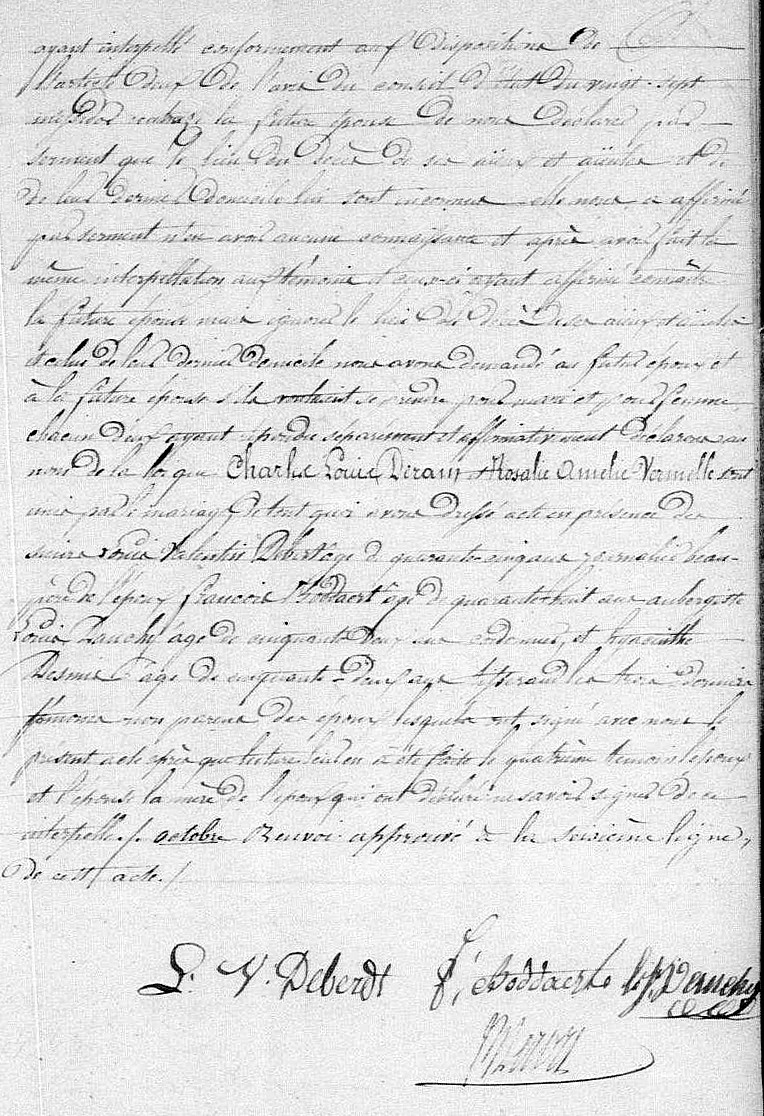 ayant interpellé conformement aux dispositions de
l'article deux de l'avis du conseil d'état du vingt-sept
messidor an treize la future épouse de nous déclarer par
serment que le lieu du décès de ses aïeux et aïeules et de
de leur dernier domicile lui sont inconnus elle nous a affirmé
par serment n'en avoir aucune connaissance et après avoir fait la
même interpellation aux témoins et ceux-ci ayant affirmé connaître
la future épouse mais ignorer le lieu du décès de ses aïeux et aïeules
et celui de leur dernier domicile nous avons demandé au futur époux et
à la future épouse s'ils voulaient se prendre pour mari et pour femme
chacun d'eux ayant répondu séparément et affirmativement déclarons au
nom de la loi que Charles Louis Derain et Rosalie Amelie Vermelle sont
unis par le mariage de tout quoi avons dressé acte en présence des
sieurs Louis Valentin Deberdt agé de quarante-cinq ans journalier beau-
père de l'époux francois Boddaert âgé de quarante-huit ans aubergiste
Louis Dauchy âgé de cinquante deux ans cordonnier, et hyacinthe
âgé de cinquante-deux ans tisserand les trois derniers
témoins non parens des époux lesquels ont signé avec nous le
présent acte après que lecture leur en a été faite le quatrième témoin l'époux
et l'épouse la mère de l'époux qui ont déclaré ne savoir signer de ce
interpellés ./. octobre Renvoi approuvé à la sixième ligne,
de cett acte ./.
L. V. Deberdt F, Boddaert Dauchy